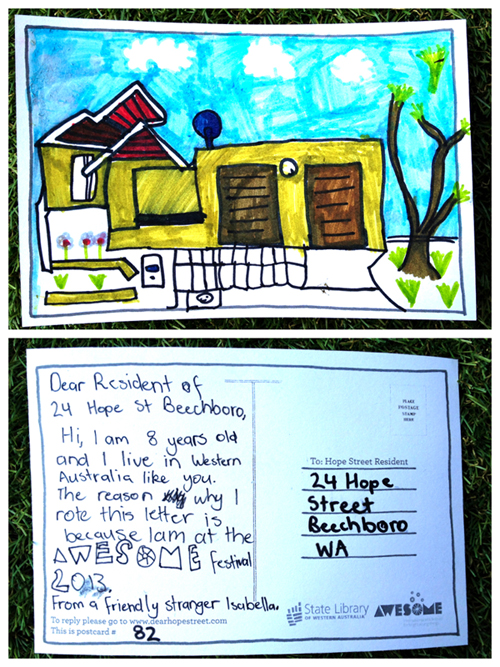 Dear Resident of
24 Hope St Beechboro,
Hi, I am 8 years old
and I live in Western
Australia like you.
The reason why I
rote this letter is
because I am at the
AWESOME festival
2013.
From a friendly stranger Isabella.
To reply please go to www.dearhopestreet.com
This is postcard # 82
PLACE
POSTAGE
STAMP
HERE
To: Hope Street Resident
24 Hope
Street
Beechboro
WA
State Library
OF WESTERN AUSTRALIA
AWESOME